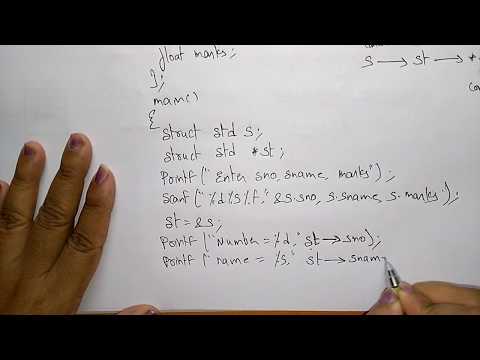 float marks;
};
main()
{
struct std s;
struct std *st;
printf("Enter sno, sname, marks");
scanf("%d%s%f," &s.sno, s.sname, s.marks);
st = &s;
printf("Number = %d," st→sno);
printf("name = %s," st→snam
s → st → *